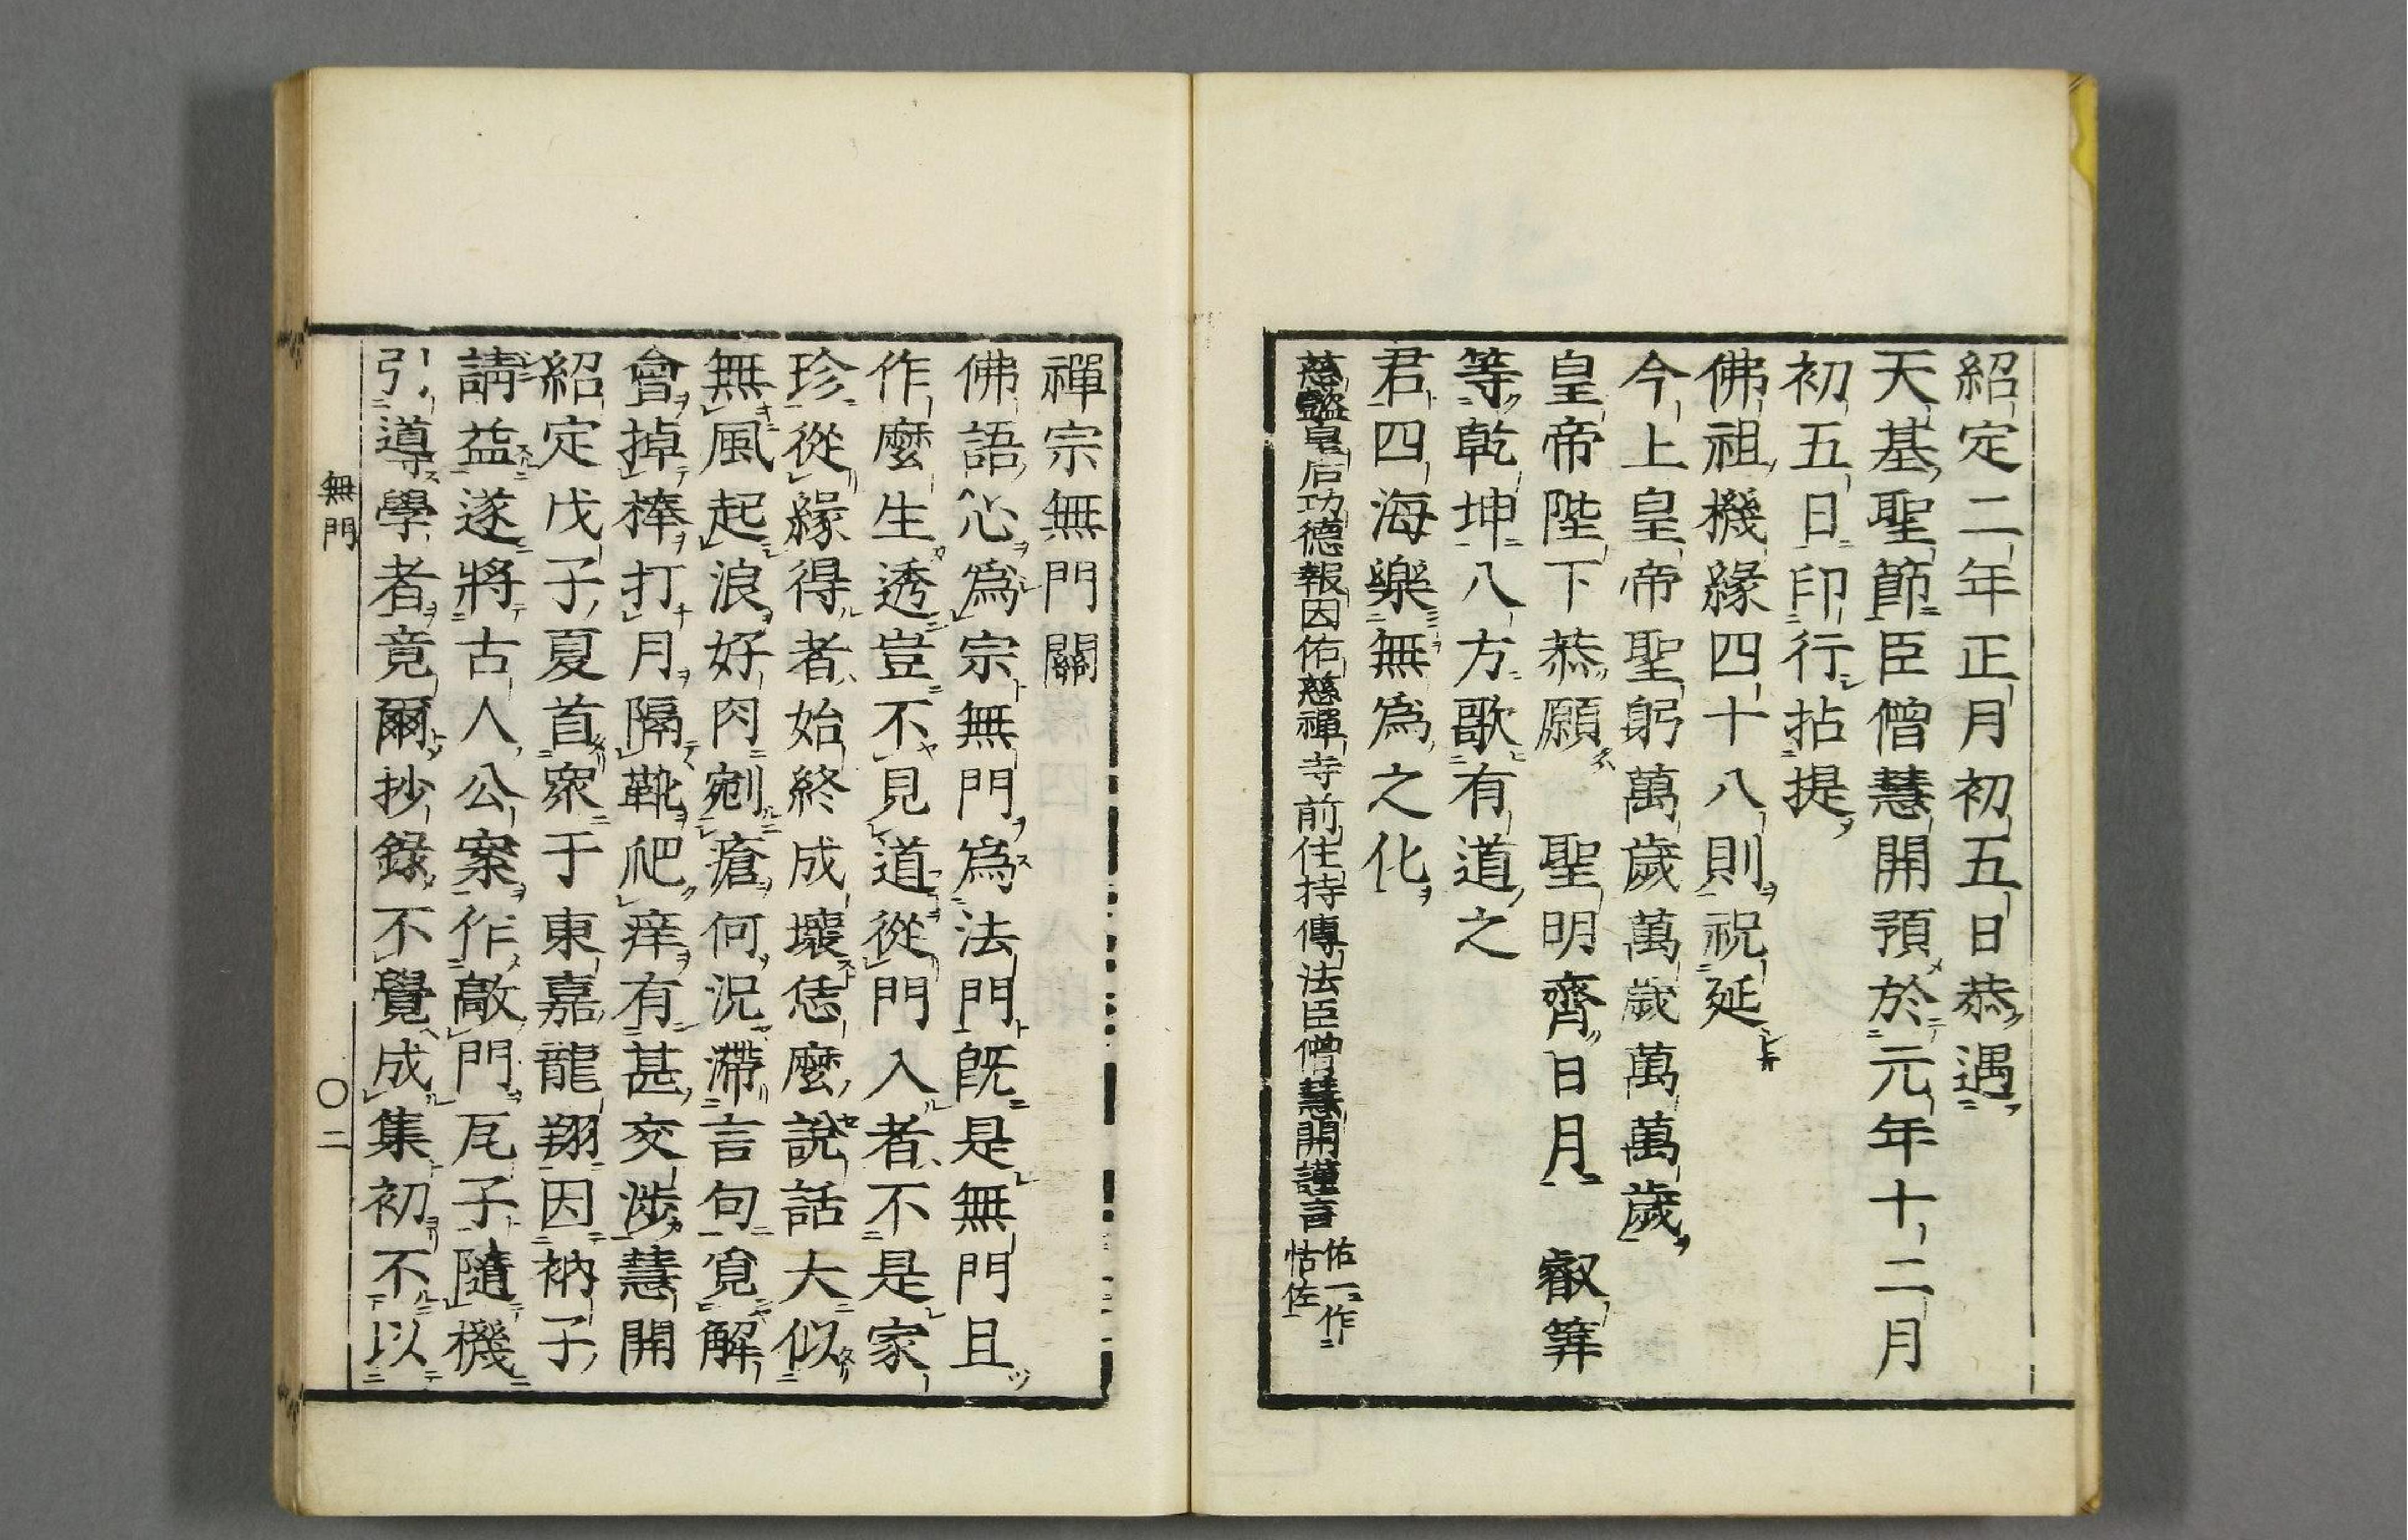 紹定二年正月初五日恭遇
天基聖節臣僧慧開預於元年十二月
初五日印行拈提
佛祖機緣四十八則祝延
今上皇帝聖躬萬歲萬歲萬萬歲
皇帝陛下恭願 聖明齊日月 叡筭
等乾坤八方歌有道之
君四海樂無爲之化
慈懿皇后功德報因佑慈禪寺前住持傳法臣僧慧開謹言
佑一作
怙佐
禪宗無門關
佛語心爲宗無門爲法門既是無門且
作麼生透豈不見道從門入者不是家
珍從緣得者始終成壞恁麼說話大似
無風起浪好肉剜瘡何況滯言句覓解
會掉棒打月隔靴爬痒有甚交涉慧開
紹定戊子夏首衆于東嘉龍翔因衲子
請益遂將古人公案作敲門瓦子隨機
引導學者竟爾抄錄不覺成集初不以
無門
〇二